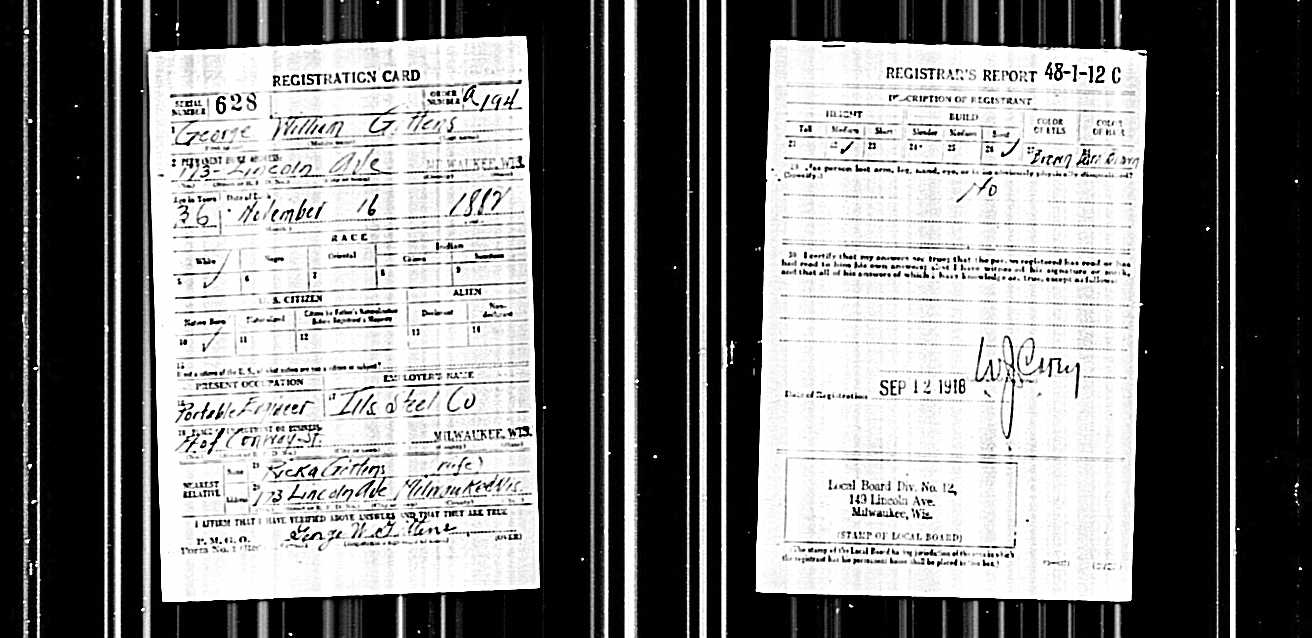 REGISTRATION CARD
SERIAL NUMBER 628 ORDER NUMBER A194
George William Gittens
2 PERMANENT HOME ADDRESS:
173- Lincoln Ave MILWAUKEE, WIS.
Age in Years Date of Birth
36 November 16 1882
RACE
White Negro Oriental Indian
Citizen Noncitizen
5 ✓ 6 7 8 9
U. S. CITIZEN ALIEN
Native Born Naturalized Citizen by Father's Naturalization Before Registrant's Majority Declarant Non-declarant
10 ✓ 11 12 13 14
15
If not a citizen of the U. S., of what nation are you a citizen or subject?
PRESENT OCCUPATION EMPLOYER'S NAME
Portable Engineer 17 Ills Steel Co
18 PLACE OF EMPLOYMENT OR BUSINESS:
Ft of Conway St. MILWAUKEE, WIS.
NEAREST RELATIVE
Name 19 Ricka Gittins (wife)
Address 20 173 Lincoln Ave Milwaukee Wis.
I AFFIRM THAT I HAVE VERIFIED ABOVE ANSWERS AND THAT THEY ARE TRUE
P. M. G. O.
Form No. 1
George W. Gittens
(OVER)
REGISTRAR'S REPORT 48-1-12 C
DESCRIPTION OF REGISTRANT
HEIGHT BUILD COLOR OF EYES COLOR OF HAIR
Tall Medium Short Slender Medium Stout
21 22 ✓ 23 24 25 26 ✓ 27 Brown 28 Brown
29 Has person lost arm, leg, hand, eye, or is he obviously physically disqualified?
(Specify.)
No
30 I certify that my answers are true; that the person registered has read or has
had read to him his own answers; that I have witnessed his signature or mark,
and that all of his answers of which I have knowledge are true, except as follows:
Date of Registration SEP 12 1918
Local Board Div. No. 12,
143 Lincoln Ave.
Milwaukee, Wis.
(STAMP OF LOCAL BOARD)
(The stamp of the Local Board having jurisdiction of the area in which
the registrant has his permanent home shall be placed in this box.)